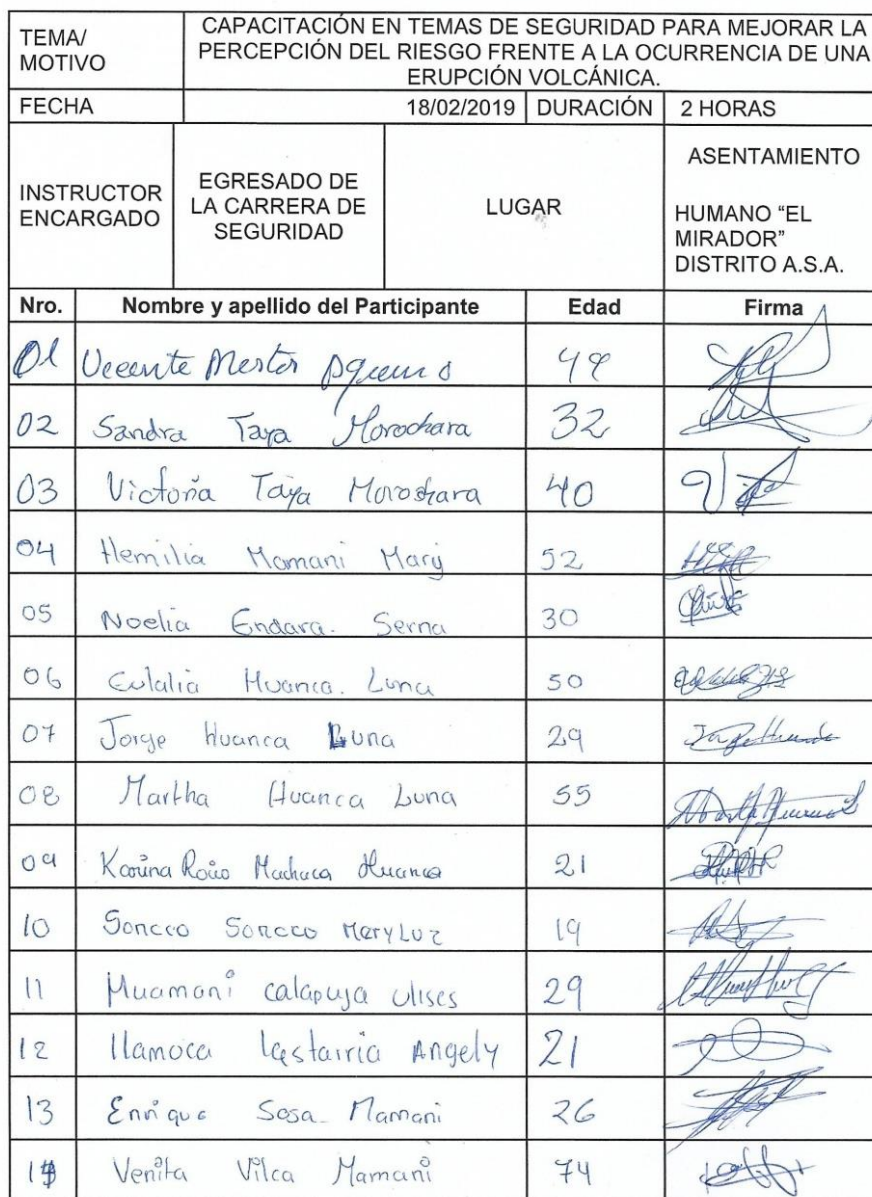 TEMA/ MOTIVO
CAPACITACIÓN EN TEMAS DE SEGURIDAD PARA MEJORAR LA
PERCEPCIÓN DEL RIESGO FRENTE A LA OCURRENCIA DE UNA
ERUPCIÓN VOLCÁNICA.
FECHA 18/02/2019 DURACIÓN 2 HORAS
INSTRUCTOR ENCARGADO
EGRESADO DE
LA CARRERA DE
SEGURIDAD
LUGAR
ASENTAMIENTO
HUMANO “EL
MIRADOR”
DISTRITO A.S.A.
Nro. Nombre y apellido del Participante Edad Firma
01
02 Sandra Taya Morochara 32
03 Victoria Taya Morochara 40
04 Hemilia Mamani Mary 52
05 Noelia Endara. Serna 30
06 Eulalia Huanca. Luna 50
07 Jorge Huanca Luna 29
08 Martha Huanca Luna 55
09 Karina Rocio Machaca Huanca 21
10 Soncco Soncco Mery Luz 19
11 Huamani calapuja Ulises 29
12 llamoca Angely 21
13 Enrique Sosa Mamani 26
14 Venita Vilca Mamani 74